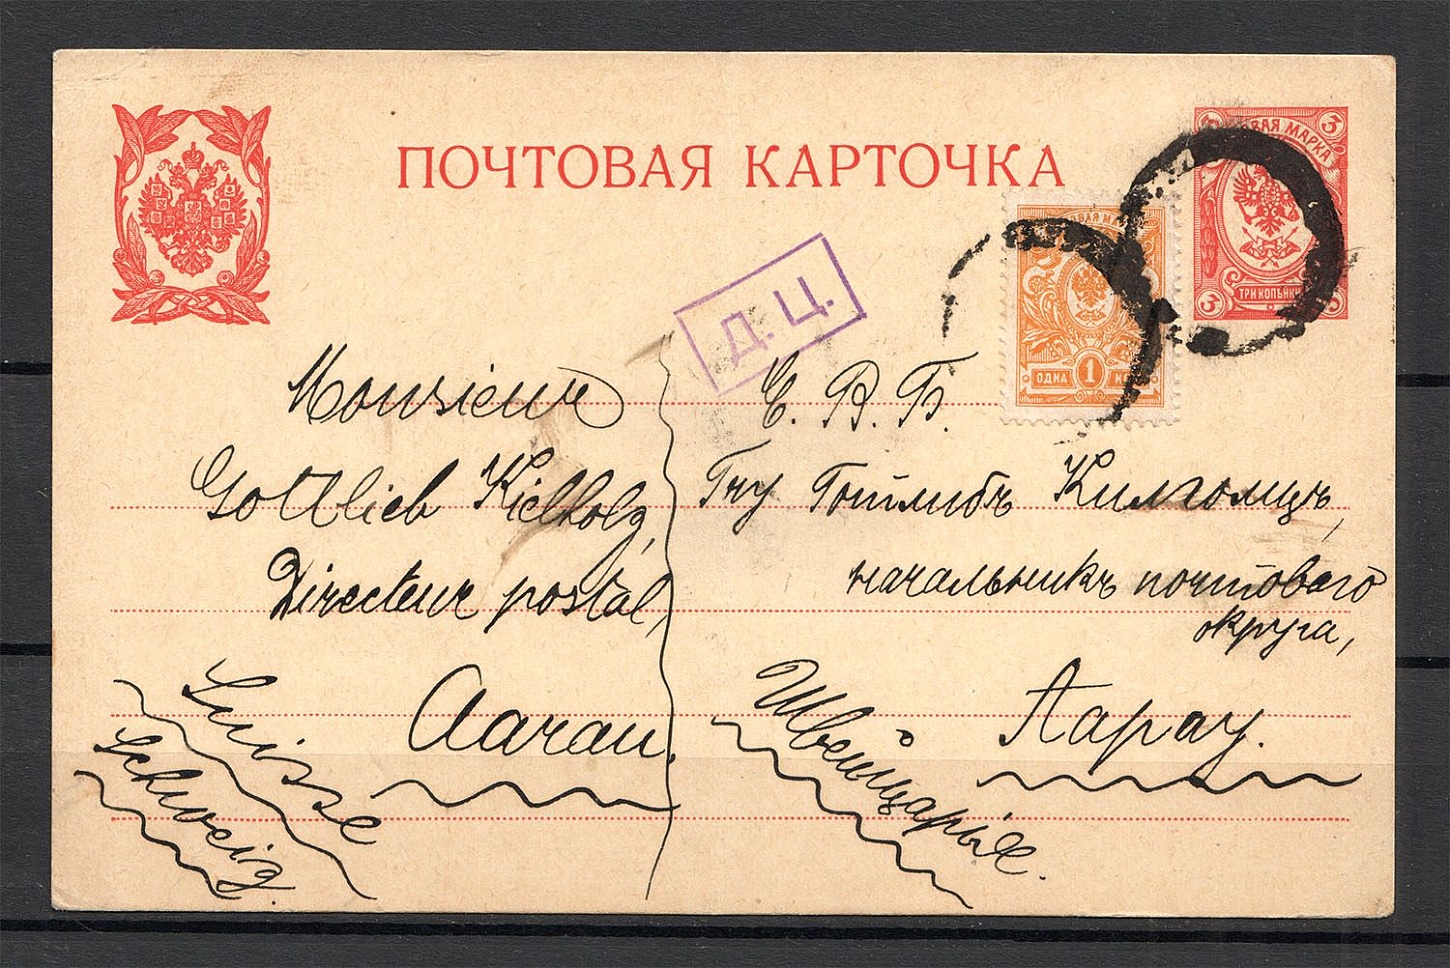 ПОЧТОВАЯ КАРТОЧКА
3
ВАЯ МАРКА
3
3
ТРИ КОПѢЙКИ
ВАЯ МА
ОДНА 1 К
Д. Ц.
Monsieur
Gottlieb Kielholz,
Directeur postal,
Aarau.
Suisse
Schweiz.
Е. В. Б.
Гну Готлибъ Килгольцъ,
начальникъ почтового
округа,
Аарау.
Швейцарія.